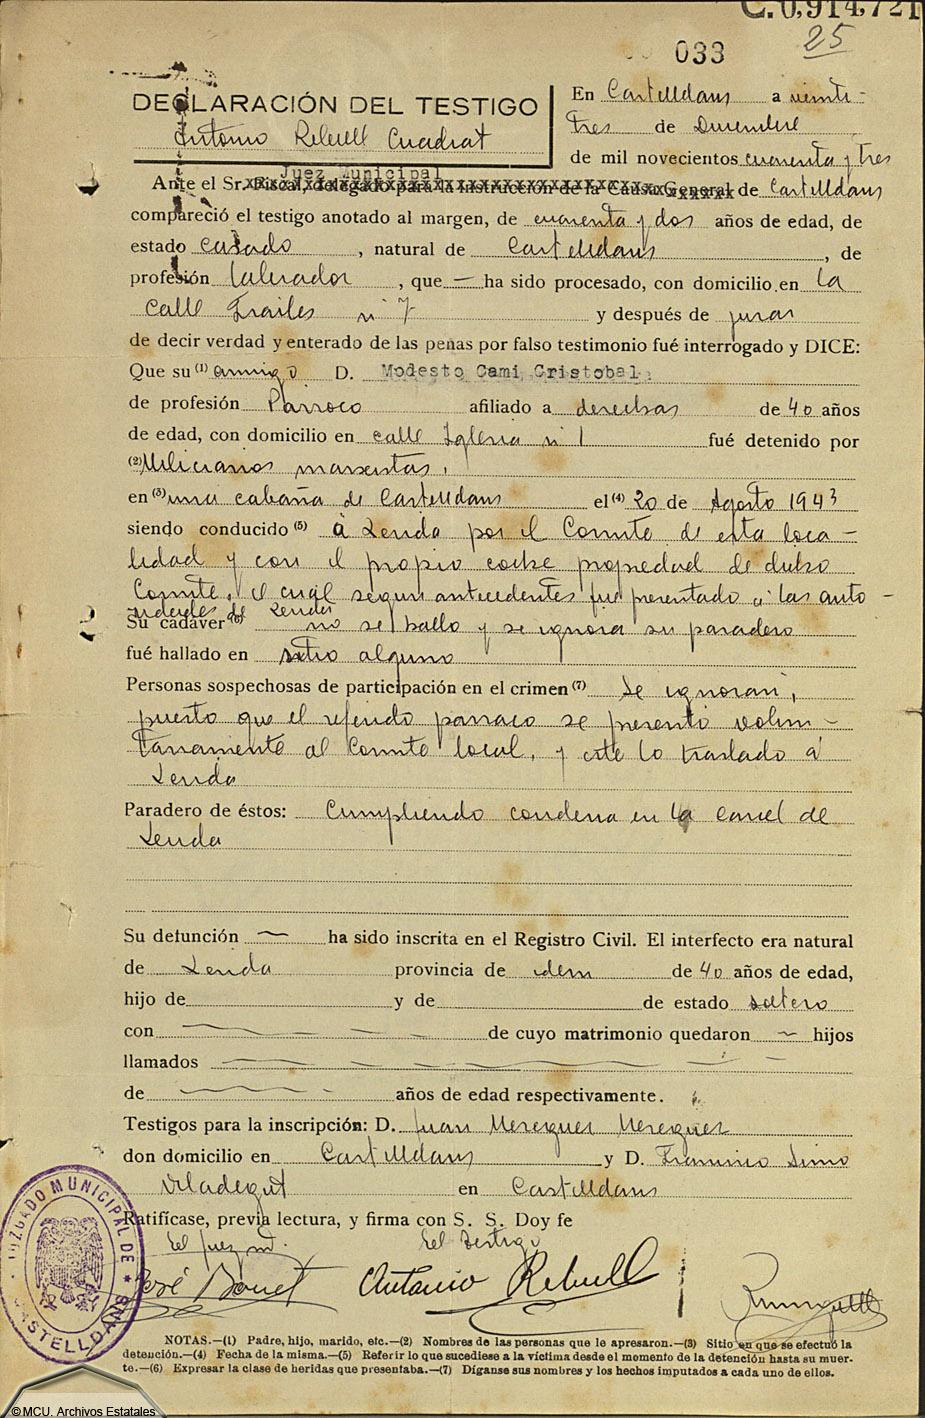 C. 0,914,721
25
033
DECLARACIÓN DEL TESTIGO
Antonio Rebull Cuadrat
En Castelldans a veinti-
tres de Diciembre
de mil novecientos cuarenta y tres
Juez Municipal
Ante el Sr. Fiscal, delegado para la instrucción de la Causa General de Castelldans
compareció el testigo anotado al margen, de cuarenta y dos años de edad, de
estado casado, natural de Castelldans, de
profesión labrador, que — ha sido procesado, con domicilio en la
calle Frailes nº 7 y después de jurar
de decir verdad y enterado de las penas por falso testimonio fué interrogado y DICE:
Que su (1) amigo D. Modesto Cami Cristobal
de profesión Párroco afiliado a derechas de 40 años
de edad, con domicilio en calle Iglesia nº 1 fué detenido por
(2) Milicianos marxistas,
en (3) una cabaña de Castelldans el (4) 20 de Agosto 1943
siendo conducido (5) a Lerida por el Comite de esta loca-
lidad y con el propio coche propiedad de dicho
Comite, el cual segun antecedentes fue presentado a las auto-
ridades de Lerida
Su cadáver (6) no se hallo y se ignora su paradero
fué hallado en sitio alguno
Personas sospechosas de participación en el crimen (7) Se ignoran,
puesto que el referido parraco se presentó volun-
tariamente al Comite local, y este lo traslado a
Lerida
Paradero de éstos: Cumpliendo condena en la carcel de
Lerida
Su defunción — ha sido inscrita en el Registro Civil. El interfecto era natural
de Lerida provincia de idem de 40 años de edad,
hijo de y de de estado soltero
con — de cuyo matrimonio quedaron — hijos
llamados —
de — años de edad respectivamente.
Testigos para la inscripción: D. Juan
don domicilio en Castelldans y D. Francisco Simo
Viladegut en Castelldans
Ratifícase, previa lectura, y firma con S. S. Doy fe
El Juez m. El Testigo
José Bonet Antonio Rebull
JUZGADO MUNICIPAL DE CASTELLDANS
NOTAS.—(1) Padre, hijo, marido, etc.—(2) Nombres de las personas que le apresaron.—(3) Sitio en que se efectuó la
detención.—(4) Fecha de la misma.—(5) Referir lo que sucediese a la víctima desde el momento de la detención hasta su muer-
te.—(6) Expresar la clase de heridas que presentaba.—(7) Díganse sus nombres y los hechos imputados a cada uno de ellos.
© MCU. Archivos Estatales